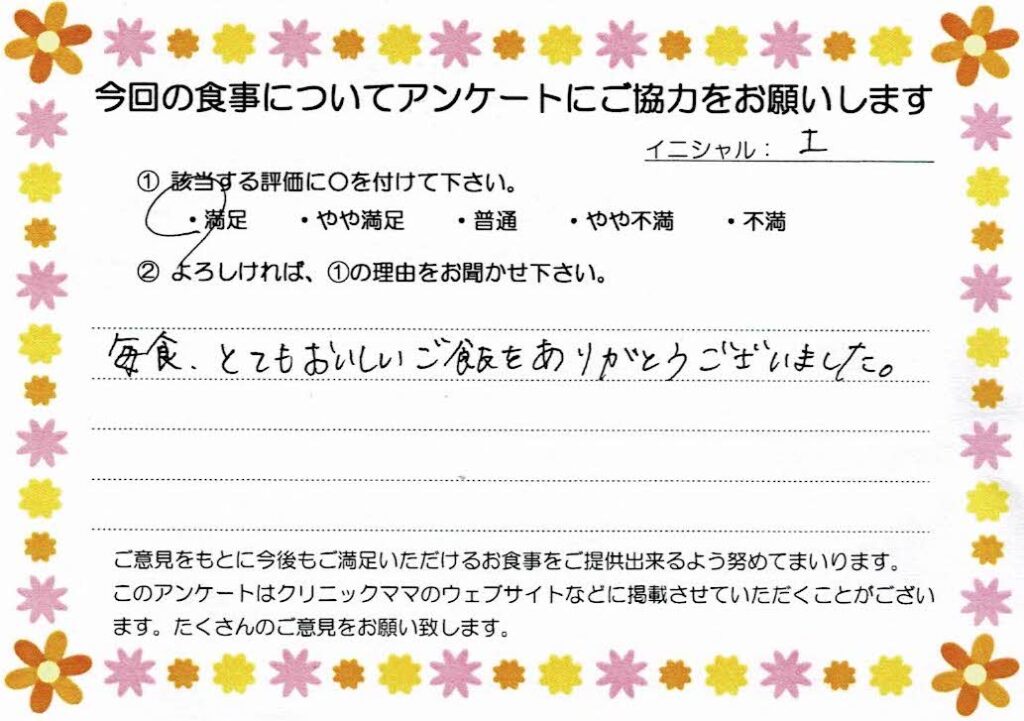 今回の食事についてアンケートにご協力をお願いします
イニシャル： エ
① 該当する評価に〇を付けて下さい。
・満足 ・やや満足 ・普通 ・やや不満 ・不満
② よろしければ、①の理由をお聞かせ下さい。
毎食、とてもおいしいご飯をありがとうございました。
ご意見をもとに今後もご満足いただけるお食事をご提供出来るよう努めてまいります。
このアンケートはクリニックママのウェブサイトなどに掲載させていただくことがござい
ます。たくさんのご意見をお願い致します。